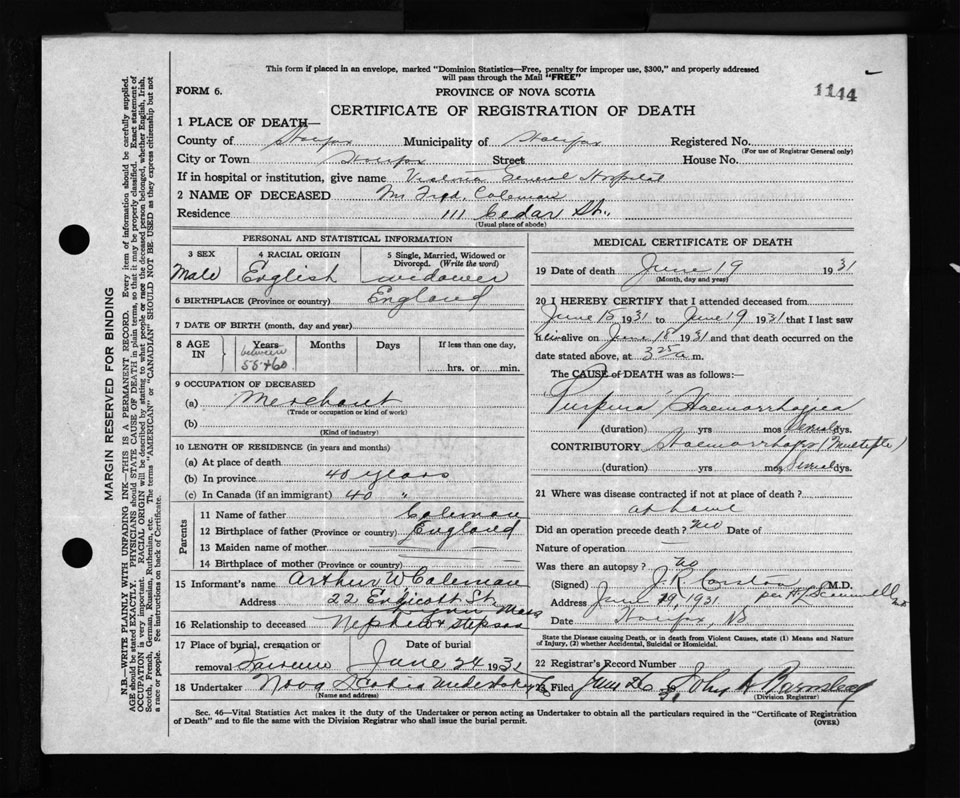 This form if placed in an envelope, marked "Dominion Statistics—Free, penalty for improper use, $300," and properly addressed
will pass through the Mail "FREE"
FORM 6.
PROVINCE OF NOVA SCOTIA
1144
CERTIFICATE OF REGISTRATION OF DEATH
1 PLACE OF DEATH—
County of Halifax Municipality of Halifax Registered No.
(For use of Registrar General only)
City or Town Halifax Street House No.
If in hospital or institution, give name Victoria General Hospital
2 NAME OF DECEASED Mr Fred. Coleman
Residence 111 Cedar St.,
(Usual place of abode)
PERSONAL AND STATISTICAL INFORMATION
3 SEX
Male
4 RACIAL ORIGIN
English
5 Single, Married, Widowed or
Divorced. (Write the word)
widower
6 BIRTHPLACE (Province or country) England
7 DATE OF BIRTH (month, day and year)
8 AGE
IN
Years
between
55 + 60
Months
Days
If less than one day,
hrs. or min.
9 OCCUPATION OF DECEASED
(a) Merchant
(Trade or occupation or kind of work)
(b)
(Kind of industry)
10 LENGTH OF RESIDENCE (in years and months)
(a) At place of death
(b) In province 40 years
(c) In Canada (if an immigrant) 40 "
Parents
11 Name of father Coleman
12 Birthplace of father (Province or country) England
13 Maiden name of mother
14 Birthplace of mother (Province or country)
15 Informant's name Arthur W Coleman
Address 22 Endicott St
Lynn Mass
16 Relationship to deceased Nephew + stepson
17 Place of burial, cremation or
removal Fairview
Date of burial
June 24 1931
18 Undertaker Nova Scotia Undertaking Co
(Name and address)
MEDICAL CERTIFICATE OF DEATH
19 Date of death June 19 1931
(Month, day and year)
20 I HEREBY CERTIFY that I attended deceased from
June 15 1931 to June 19 1931 that I last saw
him alive on June 18 1931 and that death occurred on the
date stated above, at 3 25 a m.
The CAUSE of DEATH was as follows:—
Purpura Haemorrhagica
(duration) yrs mos Several dys.
CONTRIBUTORY Haemorrhages (Multiple)
(duration) yrs mos Several dys.
21 Where was disease contracted if not at place of death?
at home
Did an operation precede death? No Date of
Nature of operation —
Was there an autopsy? No
(Signed) J. R. Corston M.D.
per H
Address June 19, 1931
Date Halifax, NS
State the Disease causing Death, or in death from Violent Causes, state (1) Means and Nature
of Injury, (2) whether Accidental, Suicidal or Homicidal.
22 Registrar's Record Number
23 Filed June 26 31 John A Barnstead
(Division Registrar)
Sec. 46—Vital Statistics Act makes it the duty of the Undertaker or person acting as Undertaker to obtain all the particulars required in the "Certificate of Registration
of Death" and to file the same with the Division Registrar who shall issue the burial permit.
(OVER)
MARGIN RESERVED FOR BINDING
N.B.—WRITE PLAINLY WITH UNFADING INK—THIS IS A PERMANENT RECORD. Every item of information should be carefully supplied.
AGE should be stated EXACTLY. PHYSICIANS should STATE CAUSE OF DEATH in plain terms, so that it may be properly classified. Exact statement of
OCCUPATION is very important. RACIAL ORIGIN will be described by stating to what people or race the deceased person belonged, whether English, Irish,
Scotch, French, German, Russian, Ruthenian, etc. The terms "AMERICAN" or "CANADIAN" SHOULD NOT BE USED as they express citizenship but not
a race or people. Fee instructions on back of Certificate.